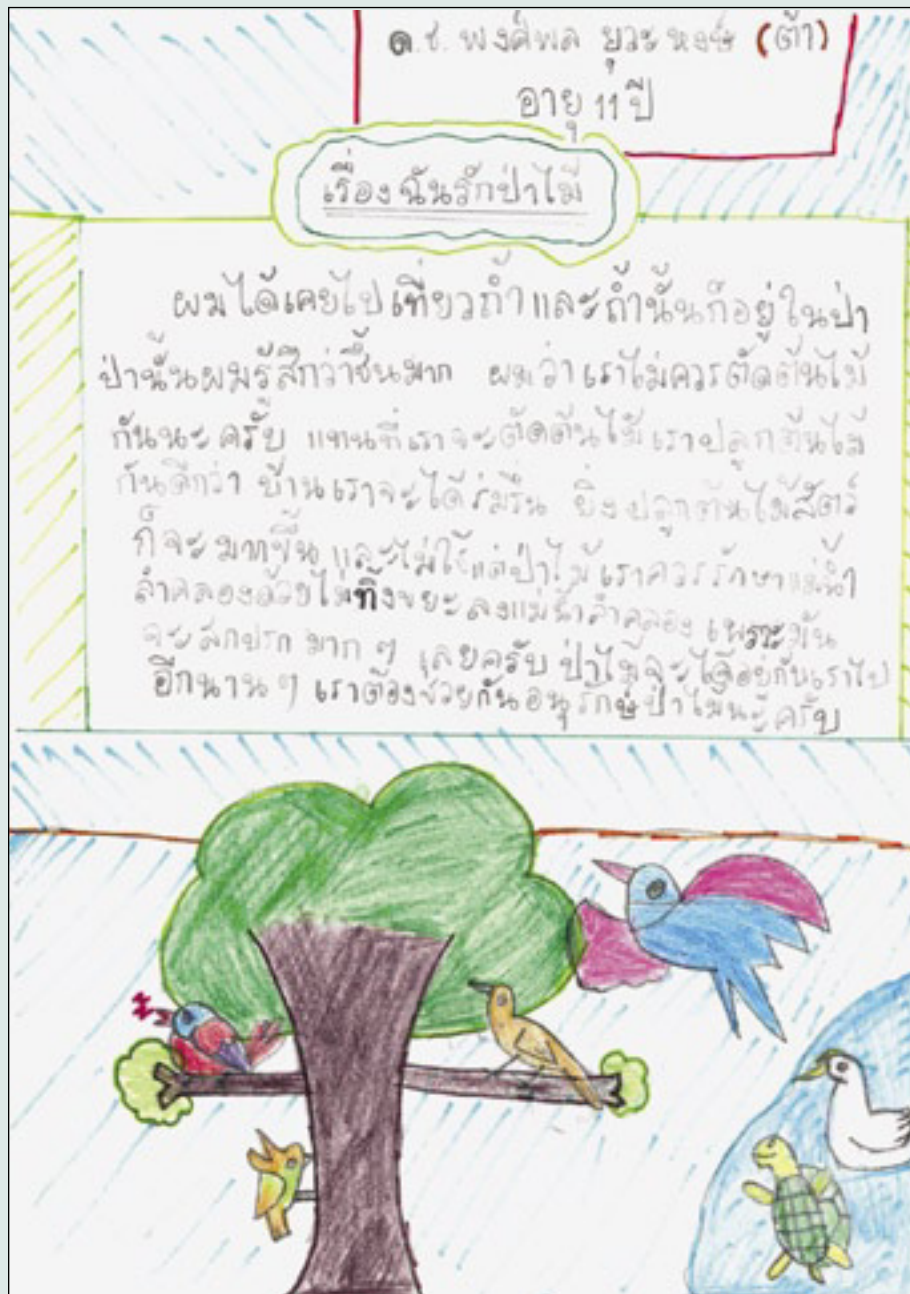 ด.ช. พงศ์พล ยุวะหงษ์ (ต้า)
อายุ 11 ปี
เรื่องฉันรักป่าไม้
ผมได้เคยไปเที่ยวถ้ำและถ้ำนั้นก็อยู่ในป่า
ป่านั้นผมรู้สึกว่าชื้นมาก ผมว่าเราไม่ควรตัดต้นไม้
กันนะครับ แทนที่เราจะตัดต้นไม้ เราปลูกต้นไม้
กันดีกว่า บ้านเราจะได้ร่มรื่น ยิ่งปลูกต้นไม้สัตว์
ก็จะมากขึ้น และไม่ใช่แต่ป่าไม้ เราควรรักษาแม่น้ำ
ลำคลองด้วยไม่ทิ้งขยะลงแม่น้ำลำคลอง เพราะมัน
จะสกปรกมาก ๆ เลยครับ ป่าไม้จะได้อยู่กับเราไป
อีกนาน ๆ เราต้องช่วยกันอนุรักษ์ป่าไม้นะครับ